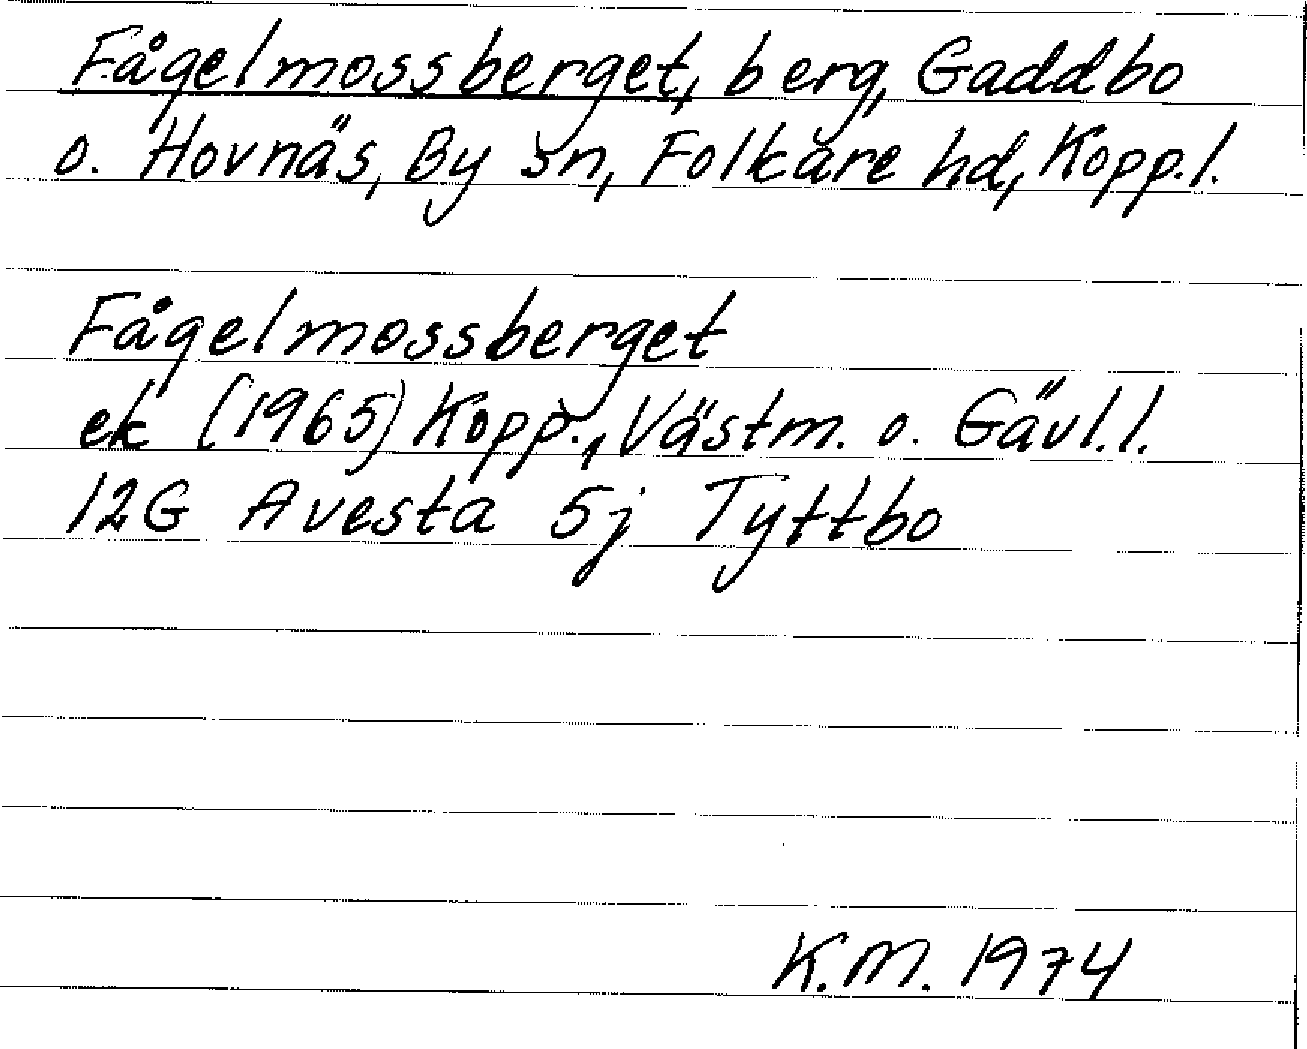 Fågelmossberget, berg, Gaddbo
o. Hovnäs, By sn, Folkare hd, Kopp.l.
Fågelmossberget
ek (1965) Kopp., Västm. o. Gävl.l.
12G Avesta 5j Tyttbo
K.M. 1974